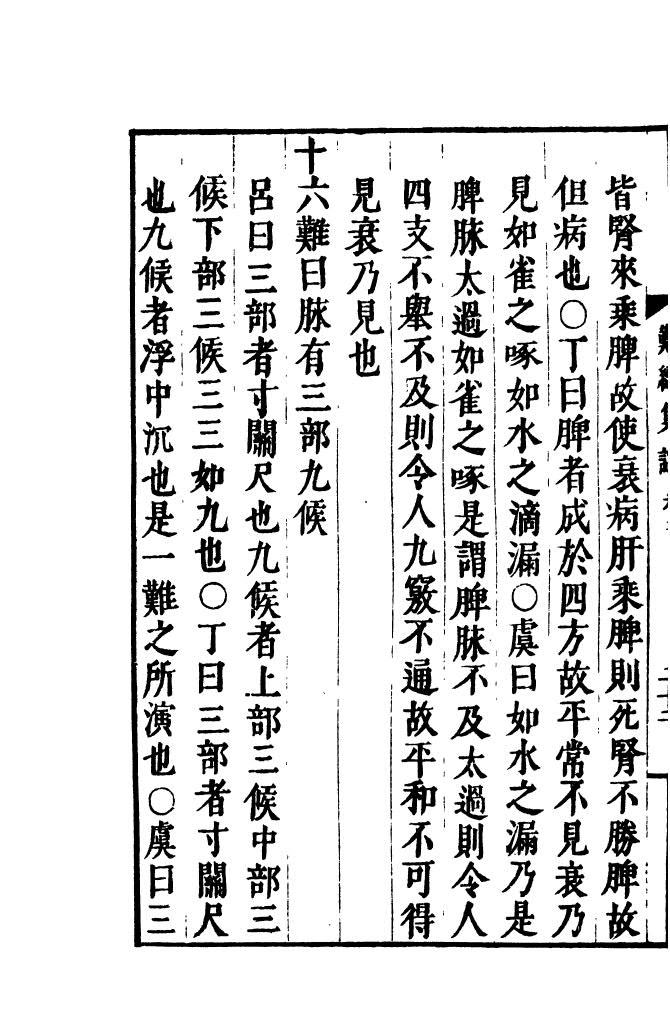 皆腎來乘脾故使衰病肝乘脾則死腎不勝脾故
但病也○丁曰脾者成於四方故平常不見衰乃
見如雀之啄如水之滴漏○虞曰如水之漏乃是
脾脉太過如雀之啄是謂脾脉不及太過則令人
四支不舉不及則令人九竅不通故平和不可得
見衰乃見也
十六難曰脉有三部九候
呂曰三部者寸關尺也九候者上部三候中部三
候下部三候三三如九也○丁曰三部者寸關尺
也九候者浮中沉也是一難之所演也○虞曰三